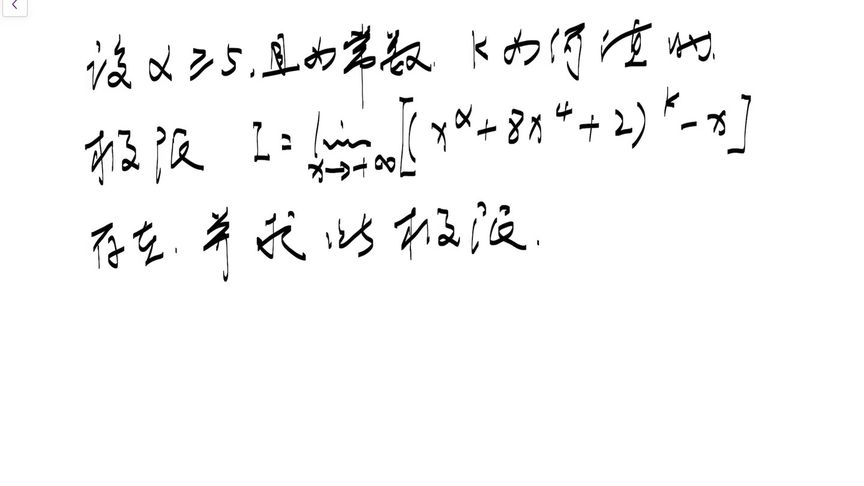 设 α ≥ 5, 且为常数. k 为何值时.
极限 I = lim x→+∞ [(x^α + 8x^4 + 2)^k - x]
存在. 并求此极限.